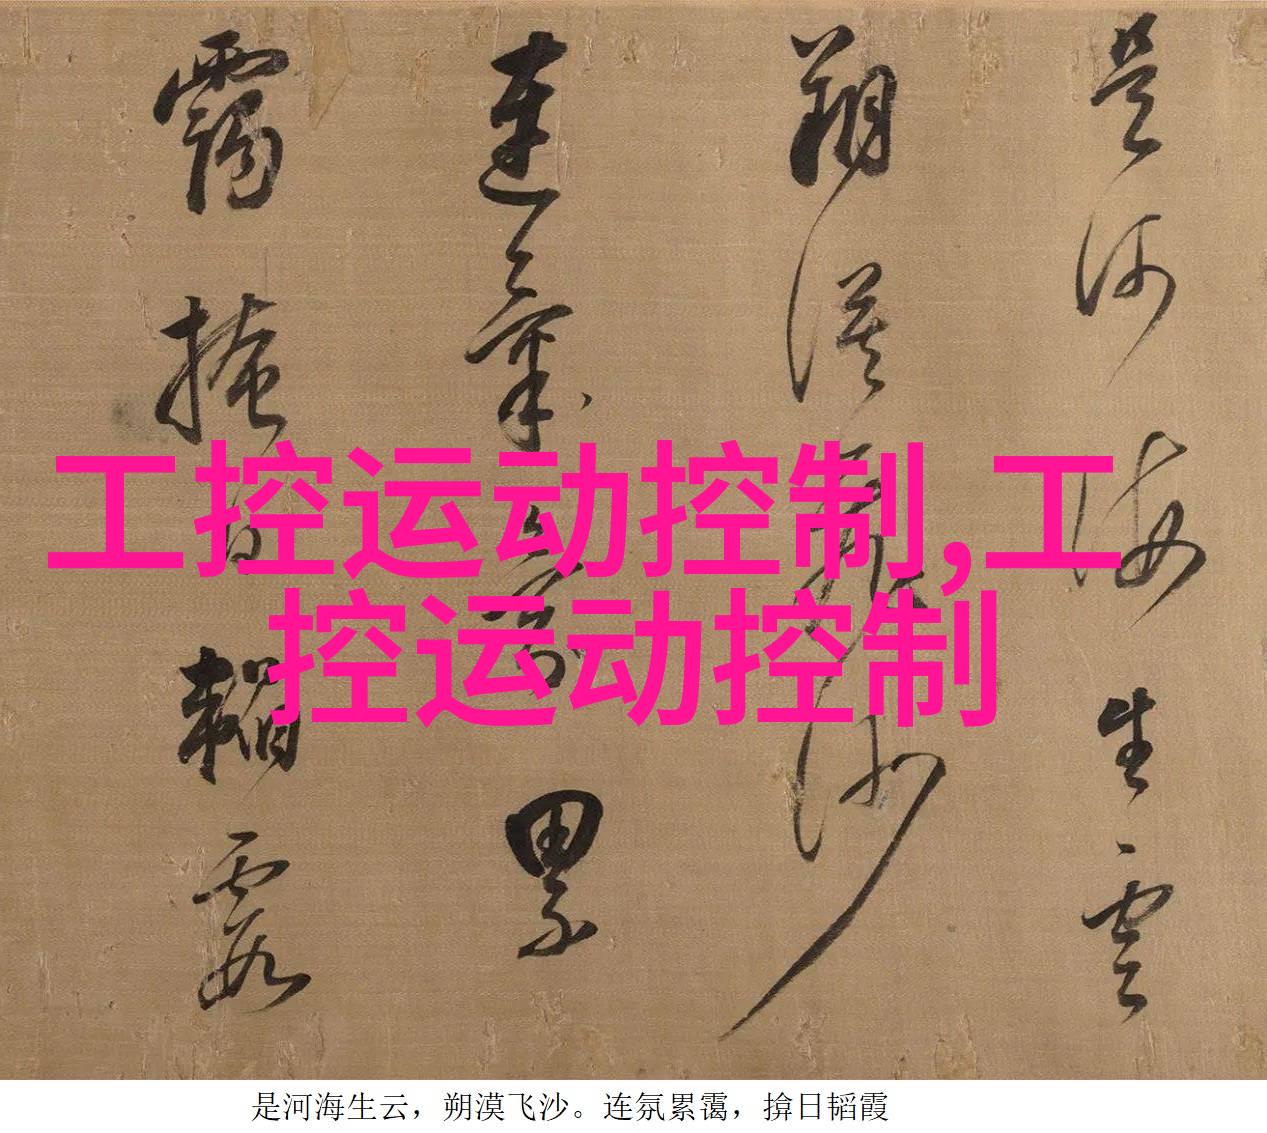 是河海生雲
朔漠飛沙
連氛累
靄掩日韜霞
工控运动控制,工
控运动控制
是河海生云，朔漠飞沙。连氛累霭，揜日韬霞